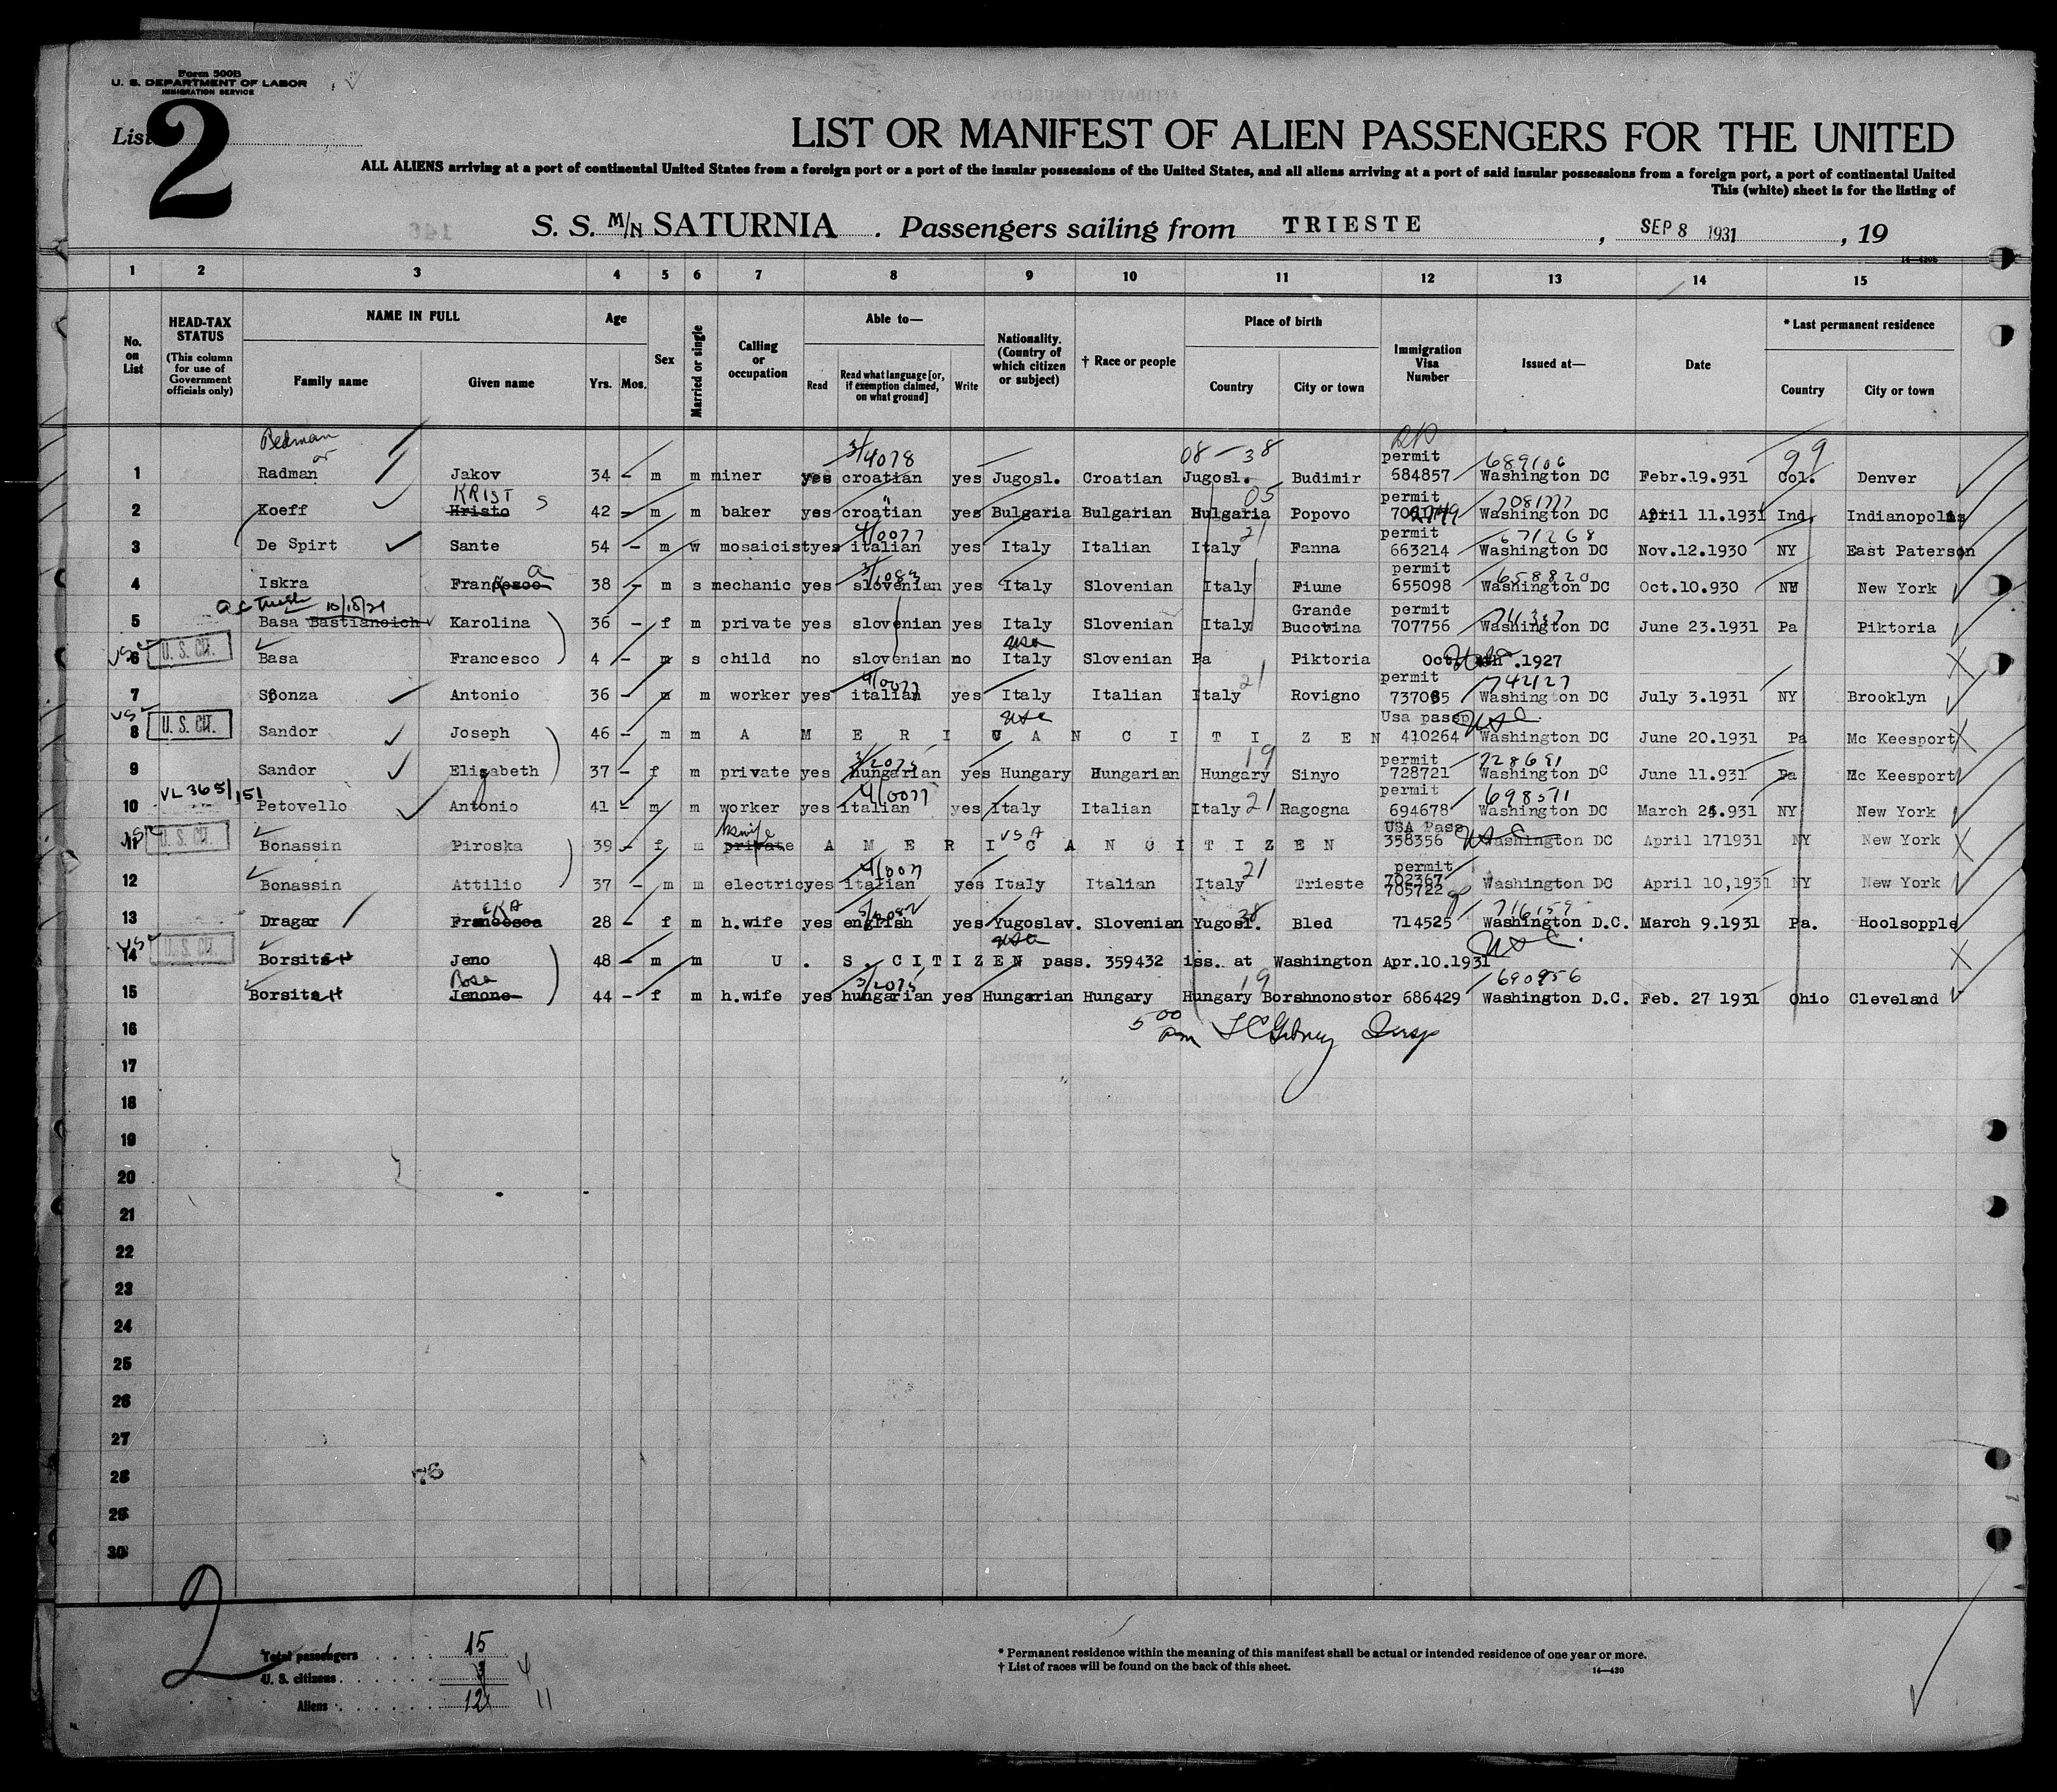 Form 500B
U. S. DEPARTMENT OF LABOR
IMMIGRATION SERVICE
List 2
LIST OR MANIFEST OF ALIEN PASSENGERS FOR THE UNITED
ALL ALIENS arriving at a port of continental United States from a foreign port or a port of the insular possessions of the United States, and all aliens arriving at a port of said insular possessions from a foreign port, a port of continental United
This (white) sheet is for the listing of
S. S. M/N SATURNIA . Passengers sailing from TRIESTE , SEP 8 1931 , 19
1 2 3 4 5 6 7 8 9 10 11 12 13 14 15
No. on List
HEAD-TAX STATUS
(This column for use of Government officials only)
NAME IN FULL
Family name Given name
Age
Yrs. Mos.
Sex
Married or single
Calling or occupation
Able to—
Read
Read what language [or, if exemption claimed, on what ground]
Write
Nationality. (Country of which citizen or subject)
† Race or people
Place of birth
Country City or town
Immigration Visa Number
Issued at—
Date
* Last permanent residence
Country City or town
Redman or 3/4078 08 - 38 permit 689106 99
1 Radman Jakov 34 - m m miner yes croatian yes Jugosl. Croatian Jugosl. Budimir 684857 Washington DC Febr.19.931 Col. Denver
KRIST S 05 permit
2 Koeff Hristo 42 - m m baker yes croatian yes Bulgaria Bulgarian Bulgaria Popovo Washington DC April 11.1931 Ind. Indianopolis
4/0077 21 permit 671268
3 De Spirt Sante 54 - m w mosaicist yes italian yes Italy Italian Italy Fanna 663214 Washington DC Nov.12.1930 NY East Paterson
a permit 658820
4 Iskra Francesco 38 - m s mechanic yes slovenian yes Italy Slovenian Italy Fiume 655098 Washington DC Oct.10.930 NY New York
10/18/21 Grande permit
5 Basa Bastiancich Karolina 36 - f m private yes slovenian yes Italy Slovenian Italy Bucovina 707756 Washington DC June 23.1931 Pa Piktoria
U. S. CIT. usa
6 Basa Francesco 4 - m s child no slovenian no Italy Slovenian Pa Piktoria Oct. .1927
4/0077 21 permit 742127
7 Sponza Antonio 36 - m m worker yes italian yes Italy Italian Italy Rovigno 737085 Washington DC July 3.1931 NY Brooklyn
U. S. CIT. usa Usa passp
8 Sandor Joseph 46 - m m A M E R I C A N C I T I Z E N 410264 Washington DC June 20.1931 Pa Mc Keesport
3/2075 19 permit 728691
9 Sandor Elizabeth 37 - f m private yes hungarian yes Hungary Hungarian Hungary Sinyo 728721 Washington DC June 11.931 Pa Mc Keesport
VL 365/151 4/0077 permit 698571
10 Petovello Antonio 41 - m m worker yes italian yes Italy Italian Italy 21 Ragogna 694678 Washington DC March 24.931 NY New York
U. S. CIT. hswife USA USA Pass
11 Bonassin Piroska 39 - f m private A M E R I C A N C I T I Z E N 358356 Washington DC April 171931 NY New York
4/0077 21 permit
12 Bonassin Attilio 37 - m m electric yes italian yes Italy Italian Italy Trieste 702367 705722 Washington DC April 10,1931 NY New York
38 716159
13 Dragar Francesca 28 - f m h.wife yes english yes Yugoslav. Slovenian Yugosl. Bled 714525 Washington D.C. March 9.1931 Pa. Hoolsopple
U. S. CIT. usa
14 Borsits Jeno 48 - m m U . S . C I T I Z E N pass. 359432 iss. at Washington Apr.10.1931
Rosa 3/2075 19 690956
15 Borsits Jenone 44 - f m h.wife yes hungarian yes Hungarian Hungary Hungary Borshnonostor 686429 Washington D.C. Feb. 27 1931 Ohio Cleveland
16 5 00 pm
17
18
19
20
21
22
23
24
25
26
27
28 76
29
30
2
Total passengers 15
U. S. citizens 3 4
Aliens 12 11
* Permanent residence within the meaning of this manifest shall be actual or intended residence of one year or more.
† List of races will be found on the back of this sheet.
14—430